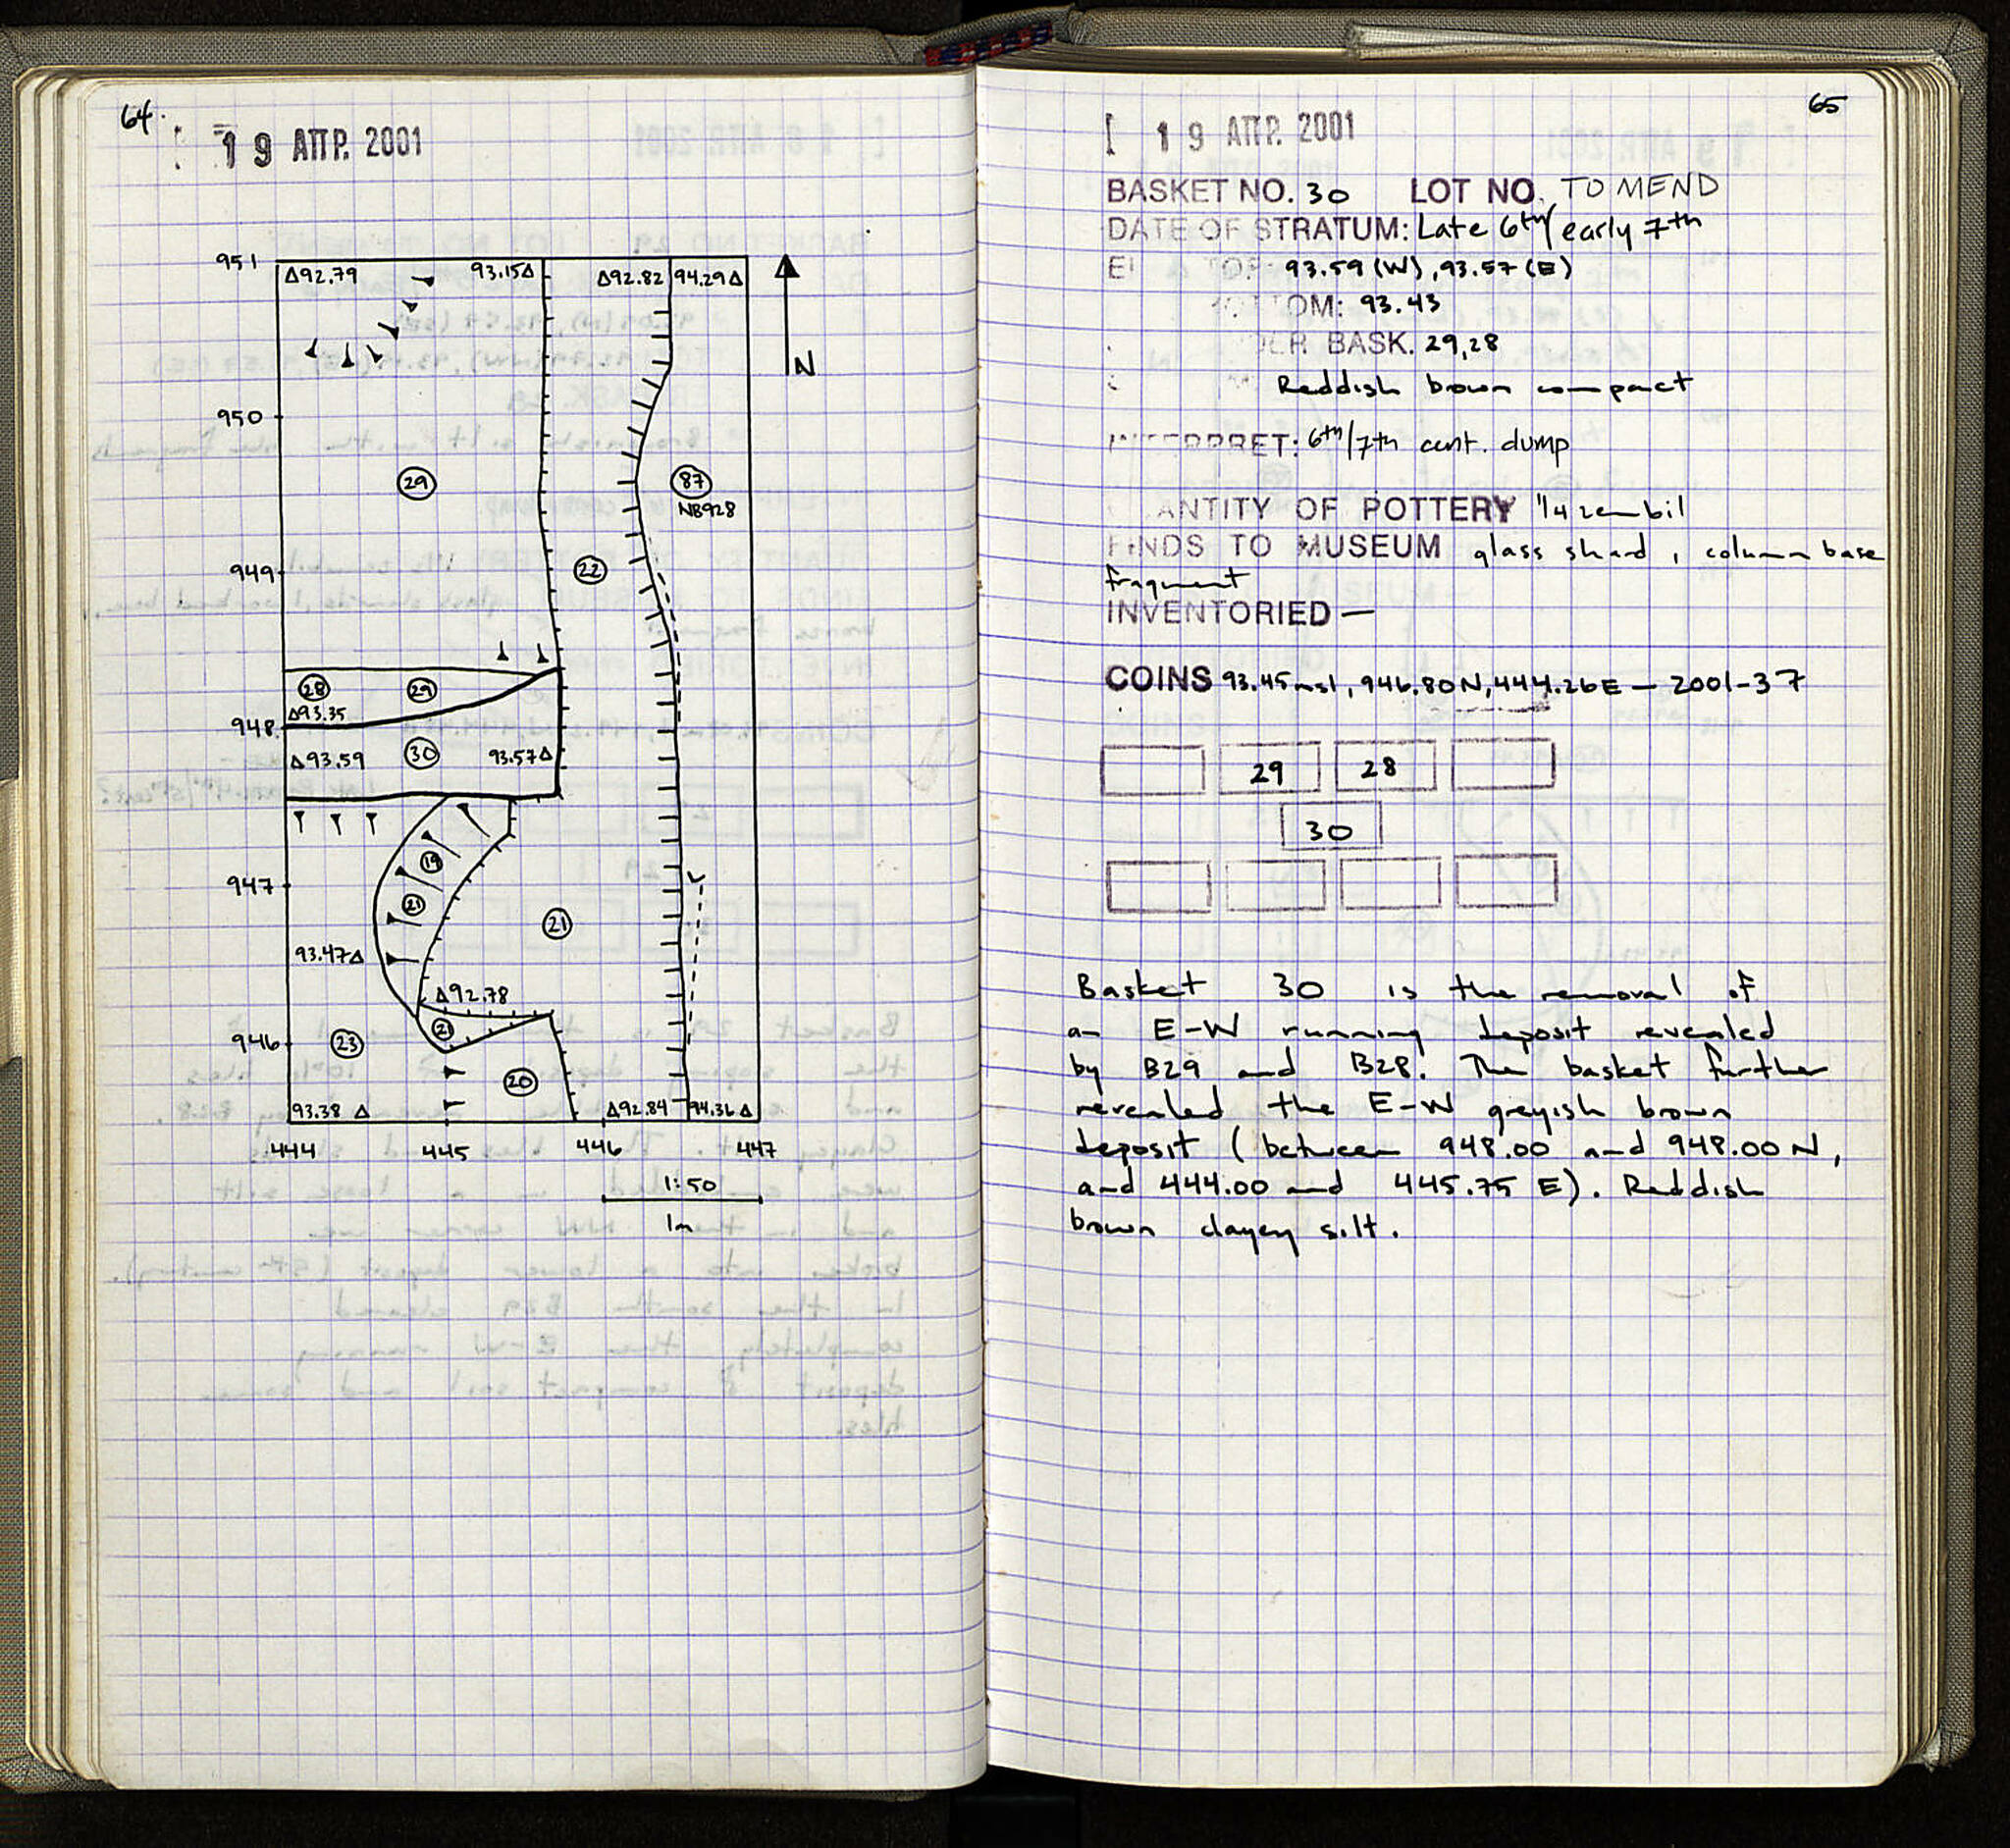 64
19 ΑΠΡ. 2001
951
Δ92.79
93.15Δ
Δ92.82
94.29Δ
N
950
29
87
NB928
949
22
28
29
Δ93.35
948
Δ93.59
30
93.57Δ
19
947
21
21
93.47Δ
Δ92.78
21
946
23
20
93.38 Δ
Δ92.84
94.36Δ
444
445
446
447
1:50
1m
65
[ 19 ΑΠΡ. 2001
BASKET NO. 30 LOT NO. TO MEND
DATE OF STRATUM: Late 6th/early 7th
TOP 93.59 (W), 93.57 (E)
OM: 93.43
DER BASK. 29,28
Reddish brown compact
INTERPRET: 6th/7th cent. dump
ANTITY OF POTTERY 1/4 zembil
FINDS TO MUSEUM glass shard, column base
fragment
INVENTORIED —
COINS 93.45msl, 946.80N, 444.26E — 2001-37
29 28
30
Basket 30 is the removal of
an E-W running deposit revealed
by B29 and B28. The basket further
revealed the E-W greyish brown
deposit (between 948.00 and 948.00 N,
and 444.00 and 445.75 E). Reddish
brown clayey silt.